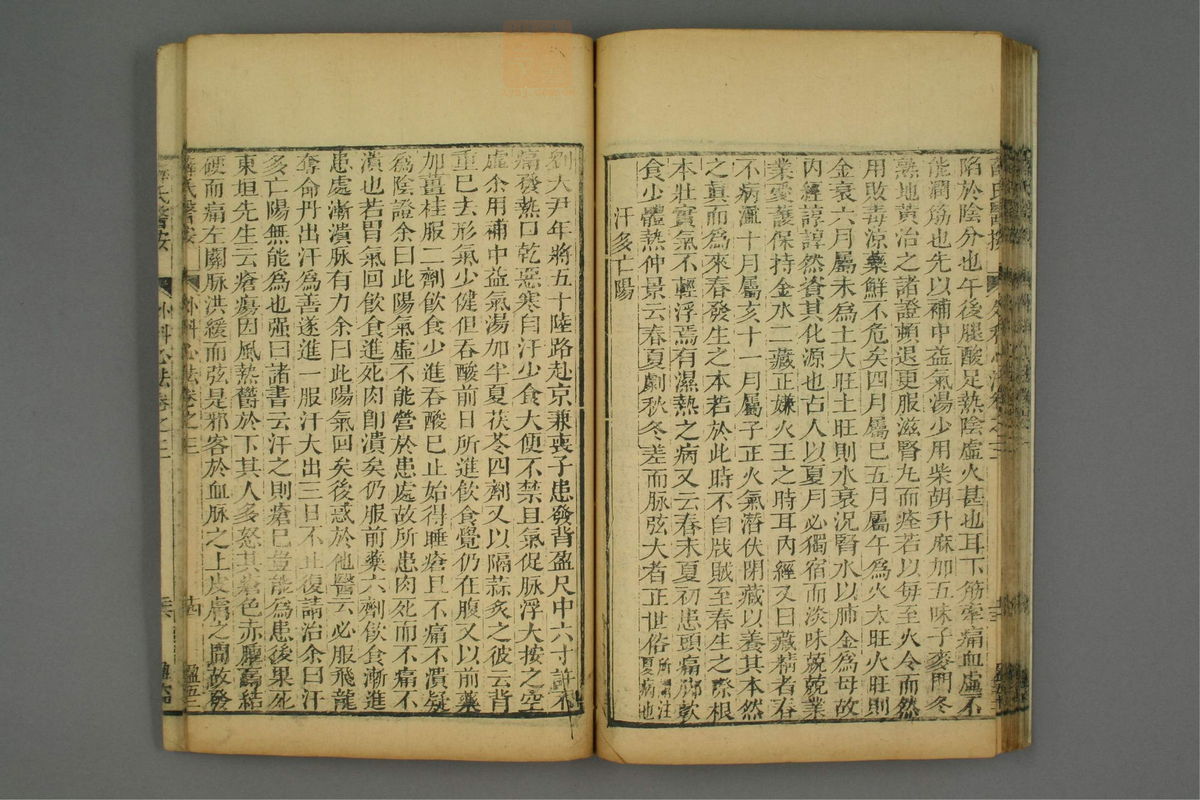 陷於陰分也午後腿酸足熱陰虛火甚也耳下筋牽痛血虛不
能潤筋也先以補中益氣湯少用柴胡升麻加五味子麥門冬
熟地黃治之諸證頓退更服滋腎丸而痊若以每至火令而然
用敗毒涼藥鮮不危矣四月屬巳五月屬午為火太旺火旺則
金衰六月屬未為土大旺土旺則水衰況腎水以肺金為母故
內經諄諄然資其化源也古人以夏月必獨宿而淡味兢兢業
業愛護保持金水二藏正嫌火王之時耳內經又曰藏精者春
不病溫十月屬亥十一月屬子正火氣潛伏閉藏以養其本然
之真而為來春發生之本若於此時不自戕賊至春生之際根
本壯實氣不輕浮焉有濕熱之病又云春末夏初患頭痛腳軟
食少體熱仲景云春夏劇秋冬差而脉弦大者正世俗所謂注夏病也
汗多亡陽
劉大尹年將五十陸路赴京兼喪子患發背盈尺中六寸許不
痛發熱口乾惡寒自汗少食大便不禁且氣促脉浮大按之空
虛余用補中益氣湯加半夏茯苓四劑又以隔蒜灸之彼云背
重已去形氣少健但吞酸前日所進飲食覺仍在腹又以前藥
加薑桂服二劑飲食少進吞酸巳止始得睡瘡且不痛不潰疑
為陰證余曰此陽氣虛不能營於患處故所患肉死而不痛不
潰也若胃氣回飲食進死肉卽潰矣仍服前藥六劑飲食漸進
患處漸潰脉有力余曰此陽氣回矣後惑於他醫云必服飛龍
奪命丹出汗為善遂進一服汗大出三日不止復請治余曰汗
多亡陽無能為也强曰諸書云汗之則瘡已豈能為患後果死
東垣先生云瘡瘍因風熱鬱於下其人多怒其瘡色赤腫高結
硬而痛左關脉洪緩而弦是邪客於血脉之上皮膚之間故發
薛氏醫按 外科心法卷之三